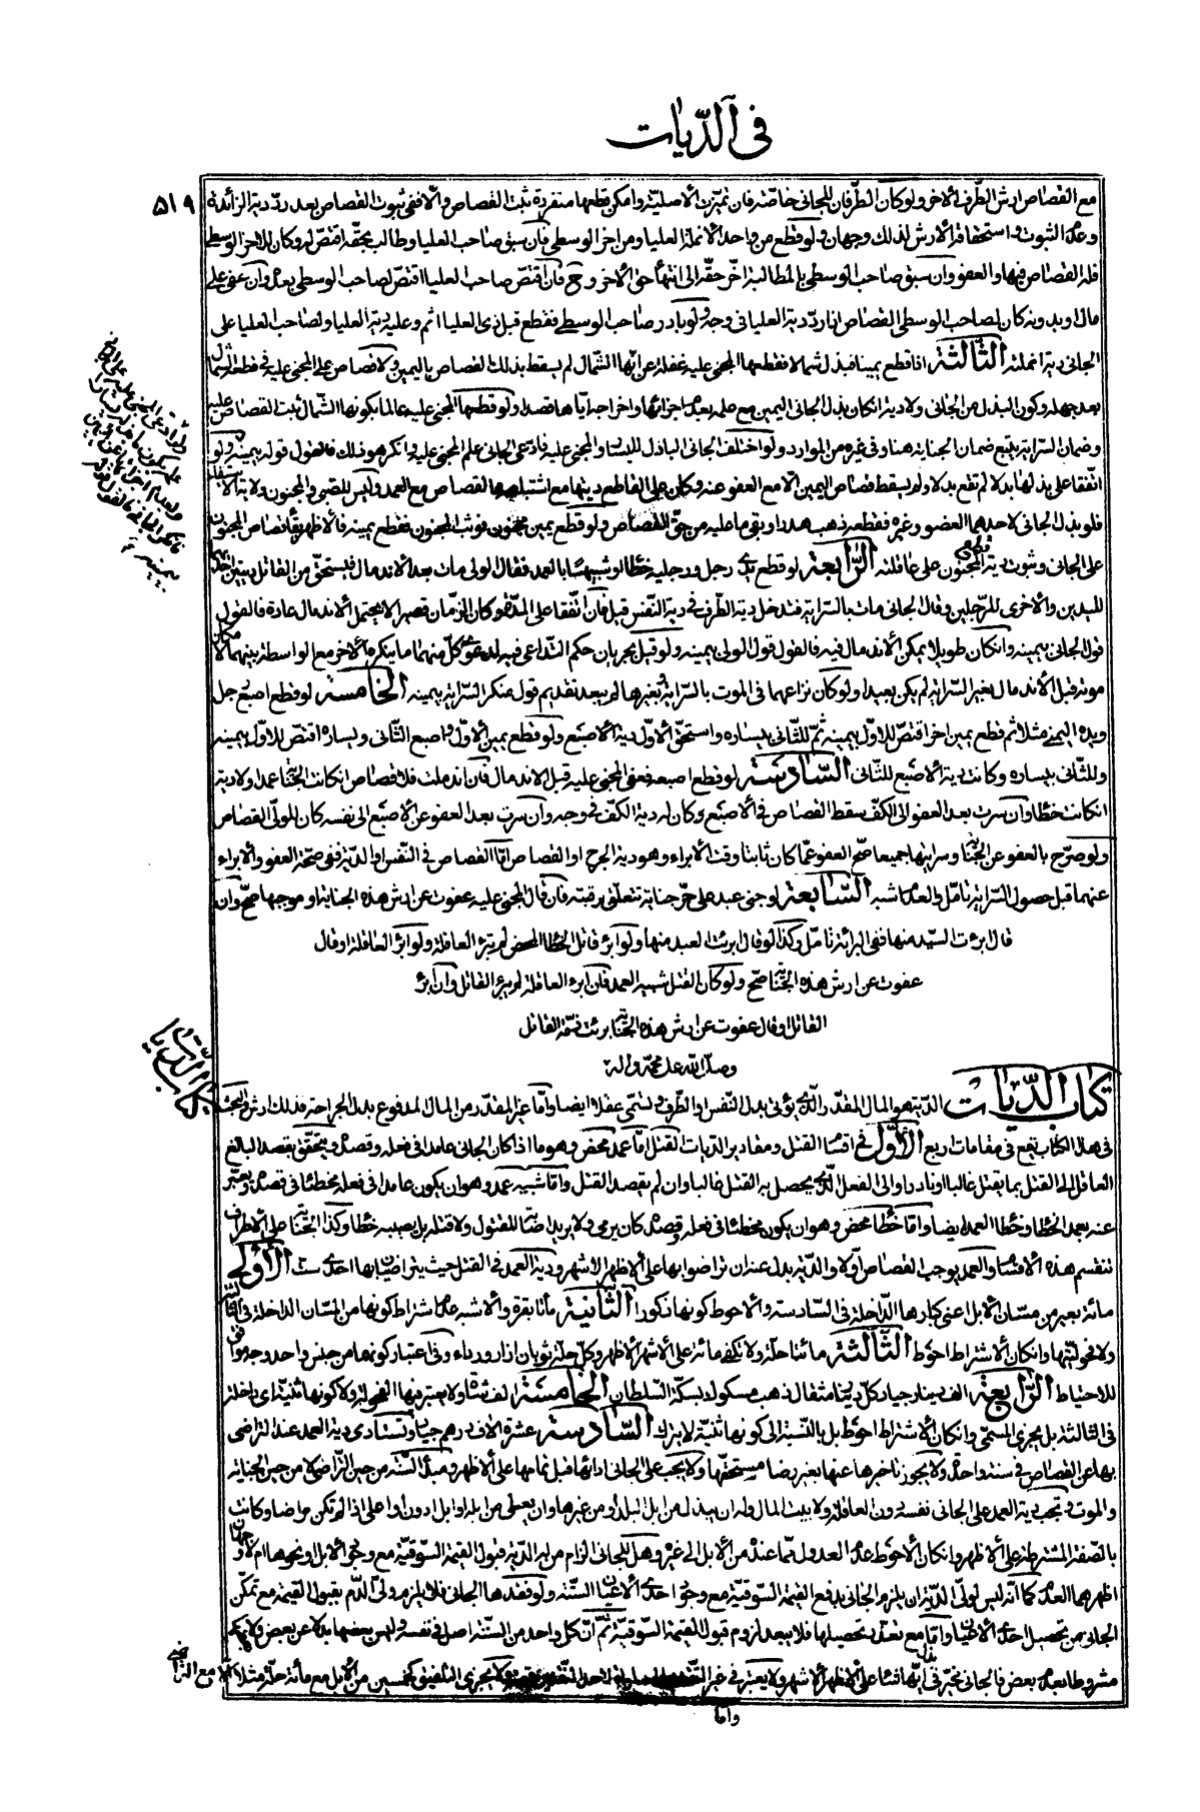 فى الدّيات
٥١٩
مع القصاص ارش الطّرف الاخر ولو كان الطّرفان للجانى خاصّة فان تميّزت الاصليّة وامكن قطعها منفردة ثبت القصاص والّا ففى ثبوت القصاص بعد ردّ دية الزائدة
وعدم الثبوت واستحقاق الأرش لذلك وجهان ولو قطع من واحد الأنملة العليا ومن اخر الوسطى فان سبق صاحب العليا وطالب بحقّه اقتصّ له وكان للاخر الوسطى
فله القصاص فيها والعفو وان سبق صاحب الوسطى بالمطالبة اخّر حقّه الى انتهاء حق الاخر و ح فان اقتصّ صاحب العليا اقتصّ لصاحب الوسطى بعده وان عفى على
مال او بدونه كان لصاحب الوسطى القصاص اذا ردّ دية العليا فى وجه ولو بادر صاحب الوسطى فقطع قبل ذى العليا اثم وعليه دية العليا ولصاحب العليا على
الجانى دية انملته الثّالثة اذا قطع يمينا فبذل شمالا فقطعها المجنى عليه غفلة عن انّها الشّمال لم يسقط بذلك القصاص باليمين ولا قصاص على المجنى عليه فى قطعه الشّمال
بعد جهله وكون البذل من الجانى ولا دية ان كان بذل الجانى اليمين مع علمه بعدم اجزائها واخراجه ايّاها قصدا ولو قطعها المجنى عليه عالما بكونها الشّمال ثبت القصاص عليه
وضمان السّراية يتبع ضمان الجناية هنا وفى غيره من الموارد ولو اختلف الجانى الباذل لليسار والمجنى عليه فادّعى الجانى علم المجنى عليه وانكر هو ذلك فالقول قوله بيمينه ولو
اتّفقا على بذلها بدلا لم تقع بدلا ولم يسقط قصاص اليمين الّا مع العفو عنه وكان على القاطع ديتها مع اشتباهه القصاص مع العمد وليس للصّبى والمجنون ولاية الاستيفاء
فلو بذل الجانى لاحدهما العضو وغيره فقطعه ذهب هدرا وبقى ما عليه من حقّ القصاص ولو قطع يمين مجنون فوثب المجنون فقطع يمينه فالاظهر بقاء قصاص المجنون
على الجانى وثبوت دية المجنون على عاقلته الرّابعة لو قطع يدى رجل ورجليه خطأ او شبيها بالعمد فقال الولى مات بعد الاندمال فيستحقّ من القاتل ديتين احدهما
لليدين والاخرى للرّجلين وقال الجانى مات بالسّراية فتدخل دية الطّرف فى دية النّفس قيل فان اتّفقا على المدّة وكان الزّمان قصيرا لا يحتمل الاندمال عادة فالقول
قول الجانى بيمينه وان كان طويلا يمكن الاندمال فيه فالقول قول الولى بيمينه ولو قيل بجريان حكم التّداعى فيه لدعوى كلّ منهما ما ينكره الاخر مع الواسطة بينهما لامكان
موته قبل الاندمال بغير السّراية لم يكن بعيدا ولو كان نزاعهما فى الموت بالسّراية وبغيرها لم يبعد تقديم قول منكر السّراية بيمينه الخامسة لو قطع اصبع رجل
ويده اليمنى مثلا ثم قطع يمين اخر اقتصّ للاوّل بيمينه ثمّ للثّانى بيساره واستحقّ الاوّل دية الاصبع ولو قطع يمين الاوّل واصبع الثّانى ويساره اقتصّ للاوّل بيمينه
وللثّانى بيساره وكانت دية الاصبع للثّانى السّادسة لو قطع اصبعه فعفى المجنى عليه قبل الاندمال فان اندملت فلا قصاص ان كانت الجناية عمدا ولا دية
ان كانت خطأ وان سرت بعد العفو الى الكفّ سقط القصاص فى الاصبع وكان له دية الكفّ فى وجه وان سرت بعد العفو عن الاصبع الى نفسه كان للولىّ القصاص
ولو صرّح بالعفو عن الجناية وسرايتها جميعا صحّ العفو عمّا كان ثابتا وقت الابراء وهو دية الجرح او القصاص امّا القصاص فى النّفس او الدّية ففى صحّة العفو والابراء
عنهما قبل حصول السّراية تامّل والعدم اشبه السّابعة لو جنى عبد على حرّ جناية تتعلّق برقبته فان قال المجنى عليه عفوت عن ارش هذه الجناية او موجبها صحّ وان
قال ابرءت السّيّد منها ففى البرائة تامّل وكذا لو قال ابرئت العبد منها ولو ابرء قاتل الخطأ المحض لم تبرء العاقلة ولو ابرء العاقلة او قال
عفوت عن ارش هذه الجناية صحّ ولو كان القتل شبيه العمد فان ابرء العاقلة لم يبرء القاتل وان ابرء
القاتل او قال عفوت عن ارش هذه الجناية برئت ذمّة القاتل
وصلّى الله على محمّد واله
كتاب الدّيات الدّية هو المال المقدّر والّذى يؤتى بدل النّفس او الطّرف وتسمّى عقلا ايضا وامّا غير المقدّر من المال المدفوع بدل الجراحة فذلك ارش والبحث
فى هذا الكتاب يقع فى مقامات ربع الأوّل فى اقسام القتل ومقادير الديات القتل امّا عمد محض وهو ما اذا كان الجانى عامدا فى فعله وقصده ويتحقّق بقصد البالغ
العاقل الى القتل بما يقتل غالبا او نادرا والى الفعل الّذى يحصل به القتل غالبا وان لم يقصد القتل وامّا شبيه عمد وهو ان يكون عامدا فى فعله مخطئا فى قصده ويعبّر
عنه بعمد الخطأ وخطأ العمد ايضا وامّا خطأ محض وهو ان يكون مخطئا فى فعله وقصده كان يرمى ولا يريد اصابة المقتول ولا قتله بل يصيبه خطأ وكذا الجناية على الاطراف
تنقسم هذه الاقسام والعمد يوجب القصاص اوّلا والدّية بدل عنه ان تراضوا بها على الاظهر الاشهر ودية العمد فى القتل حيث يتراضيان بها احدى ست الأولى
مائة بعير من مسانّ الابل اعنى كبارها الدّاخلة فى السّادسة والاحوط كونها ذكورا الثّانية مأتا بقرة والاشبه عدم اشتراط كونها من المسّان الداخلة فى الثّالثة
ولا فحوليّتها وان كان الاشتراط احوط الثّالثة مائتا حلّة ولا تكفى مائة على الاشهر الاظهر وكلّ حلّة ثوبان ازار ورداء وفى اعتبار كونهما من جنس واحد وجه موافق
للاحتياط الرّابعة الف دينار جياد كلّ دينار مثقال ذهب مسكوك بسكّة السّلطان الخامسة الف شاة ولا يعتبر فيها الفحولة ولا كونها ثنيّة اى داخلة
فى الثالثة بل يجزى المسمّى وان كان الاشتراط احوط بل بالنّسبة الى كونها ثنيّة لا يترك السّادسة عشرة الاف درهم جياد وتستادى دية العمد عند التراضى
بها عن القصاص فى سنة واحدة ولا يجوز تاخيرها عنها بغير رضا مستحقّها ولا يجب على الجانى ادائها قبل تمامها على الاظهر ومبدء السّنة من حين التّراضى لا من حين الجناية
والموت وتجب دية العمد على الجانى نفسه دون العاقلة ولا بيت المال وله ان يبذل من ابل البلد او من غيرها وان يعطى من ابله او ابل ادون او اعلى اذا لم تكن مراضا وكانت
بالصّفة المشترطة على الاظهر وان كان الاحوط عدم العدول عمّا عنده من الابل الى غيره وهل للجانى الزام من له الدّية قبول القيمة السّوقيّة مع وجود الابل ونحوها ام لا وجهان
اظهرهما العدم كما انّه ليس لولىّ الدّية ان يلزم الجانى بدفع القيمة السّوقيّة مع وجود احدى الاعيان السّتة ولو فقدها الجانى فلا يلزم ولىّ الدّم بقبول القيمة مع تمكّن
الجانى من تحصيل احدى الاعيان وامّا مع تعذّر تحصيلها فلا يبعد لزوم قبول القيمة السّوقيّة ثمّ انّ كل واحد من السّتة اصل فى نفسه وليس بعضها بدلا عن بعض ولا
مشروطا بعدم بعض فالجانى مخيّر فى بذل ايّها شاء على الاظهر الاشهر ولا يعتبر فى غير ولا يجزى التلفيق كخمسين من الابل مع مائة حلّة مثلا الّا مع التراضى
وامّا
كتاب الدّيات